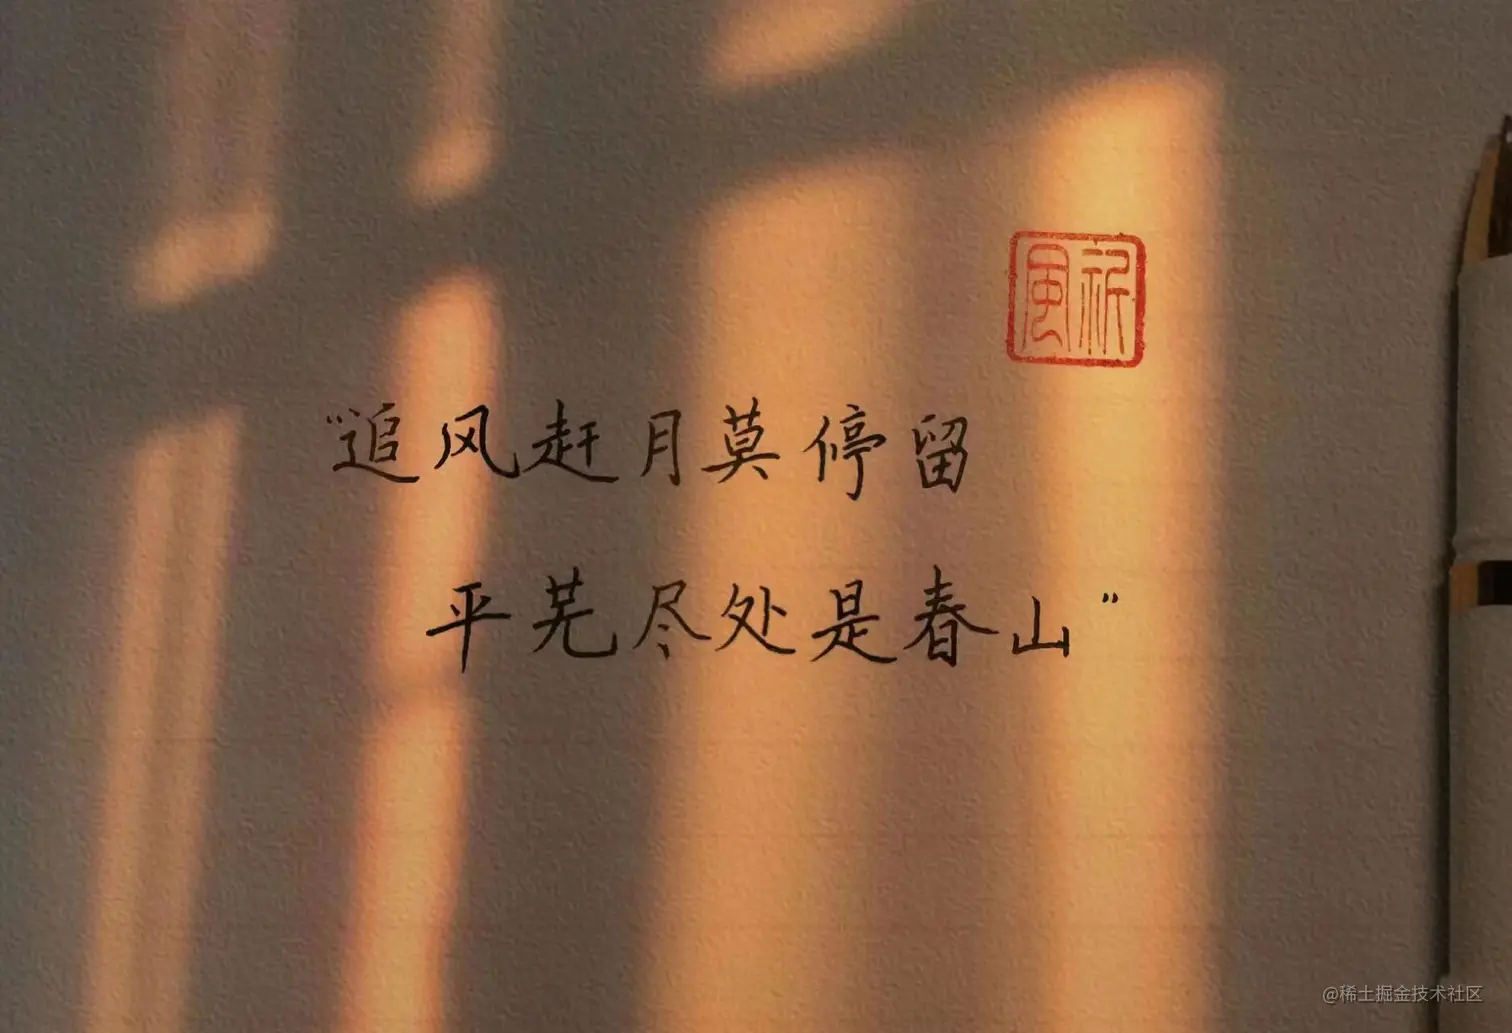 祈風
“追风赶月莫停留
平芜尽处是春山”
@稀土掘金技术社区